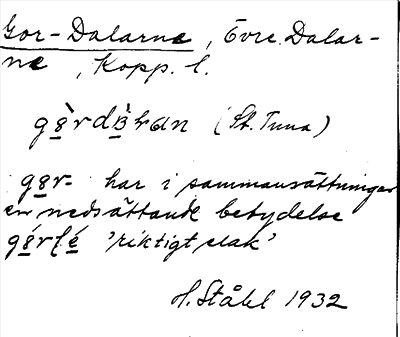 Gor-Dalarne, Övre Dalar-
ne, Kopp. l.
(St. Tuna)
har i sammansättningar
en nedsättande betydelse
'riktigt elak'
H. Ståhl 1932